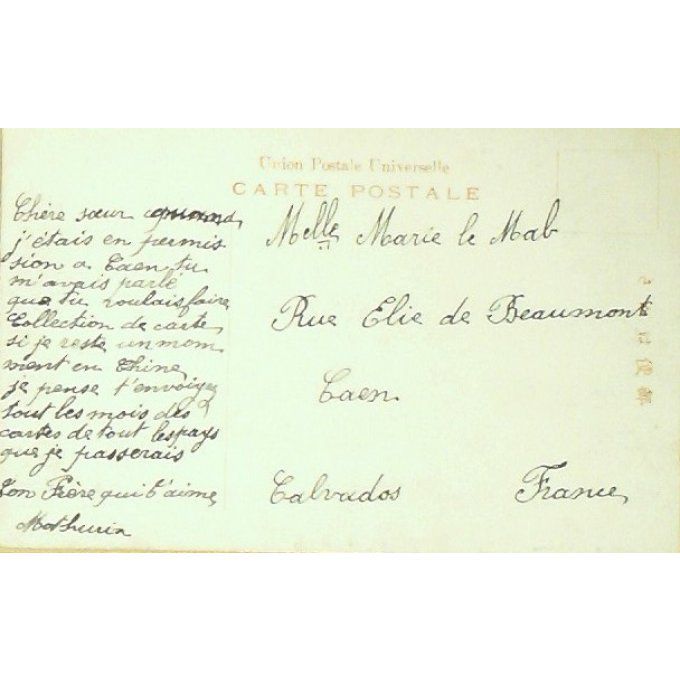 Union Postale Universelle
CARTE POSTALE
Chère sœur quand
j'étais en permis
sion a Caen tu
m'avais parlé
que tu voulais faire
Collection de carte
si je reste un mom
ment en Chine
je pense t'envoiyez
tout les mois des
cartes de tout les pays
que je passerais
Ton Frère qui t'aime
Mathurin
Melle Marie le Mab
Rue Elie de Beaumont
Caen
Calvados France